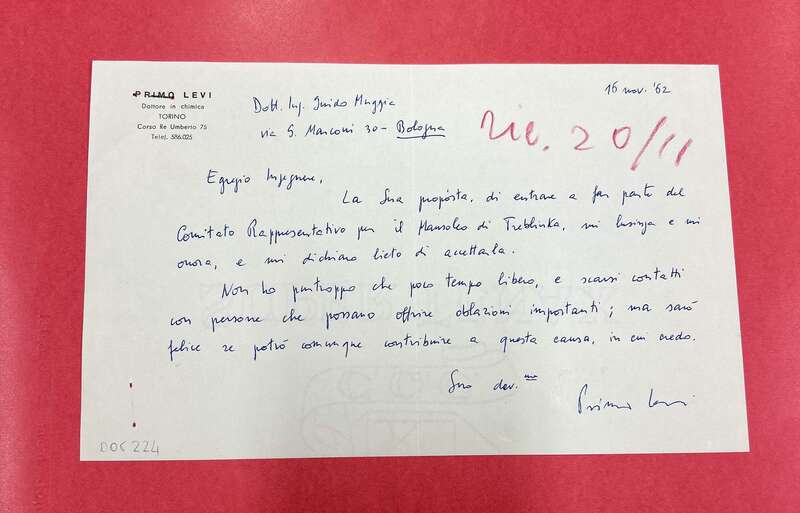 PRIMO LEVI
Dottore in chimica
TORINO
Corso Re Umberto 75
Telef. 586.025
16 nov. '62
Dott. Ing. Guido Muggia
via G. Marconi 30 - Bologna
Ric. 20/11
Egregio Ingegnere,
La Sua proposta, di entrare a far parte del
Comitato Rappresentativo per il Mausoleo di Treblinka, mi lusinga e mi
onora, e mi dichiaro lieto di accettarla.
Non ho purtroppo che poco tempo libero, e scarsi contatti
con persone che possano offrire oblazioni importanti; ma sarò
felice se potrò comunque contribuire a questa causa, in cui credo.
Suo dev.mo
Primo Levi
DOC 224